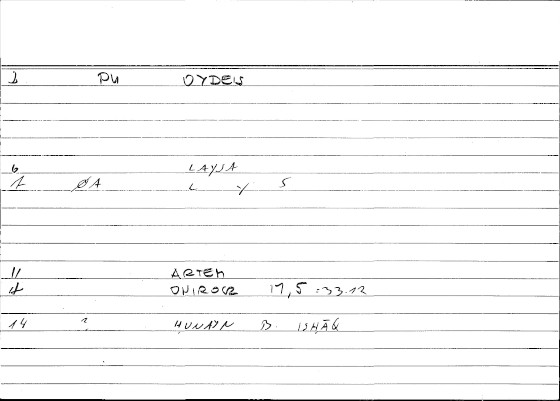 1 PU OYDEU
6 LAYSA
1 ØA L Y S
11 ARTEM
4 ONIROCR 17,5 :33.12
14 ? HUNAYN B. ISHĀQ